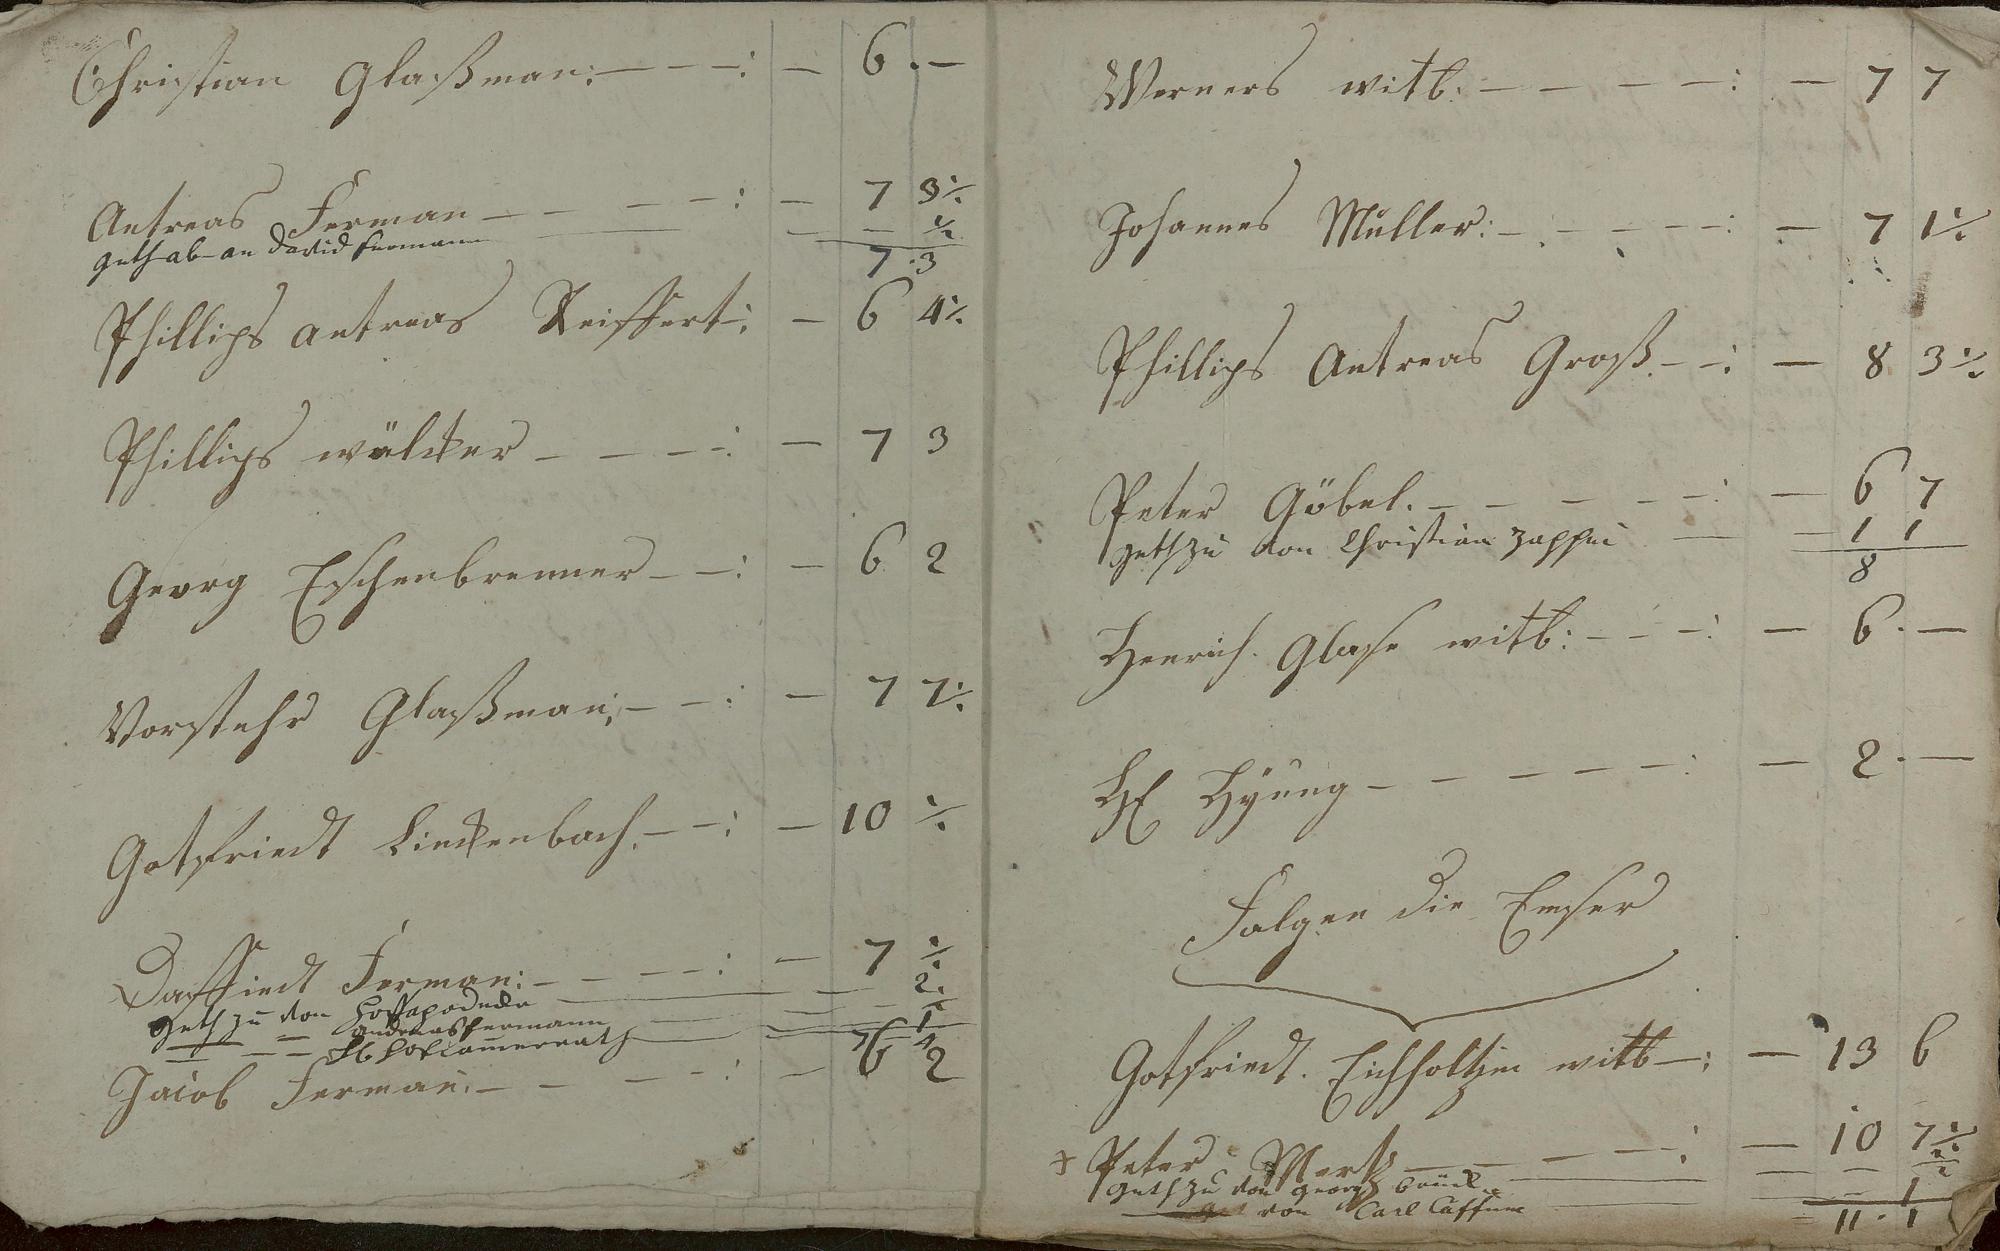 Christian Glaßman: — — — : — 6 . —
Antreas Ferman — — — — : — 7 3 ½
geth ab – an David Fermann — — — ½
7 . 3
Phillips antreas Reiffert : — 6 4 ½
Phillips wälcker — — — — : — 7 3
Georg Eschenbrenner — — : — 6 2
Vorstehr Glaßman: — — : — 7 7 ½
Gotfriedt Linckenbach. — — : — 10 ½
Daffiedt Ferman: — — — — : — 7 ½
geth zu von — — 2
— — andreas Fermann — — ½
— — — Hofcammerrath — — 1
7 4
Jacob Ferman: — — — — : — 6 2
Werners witb: — — — — : — 7 7
Johannes Müller: — — — — : — 7 1 ½
Phillips Antreas Groß — — : — 8 3 ½
Peter Göbel. — — — — — : — 6 7
geth zu von Christian — — 1 1
8
Henrich Glase witb: — — — : — 6 . —
Hyung — — — — — : — 2 . —
Folgen die Emser
Gotfriedt. Eichholtzin witb — : — 13 6
+ Peter Mertz — — — — : — 10 7 ½
geth zu von georg — — — ½
von Carl — — — 1
11 . 1